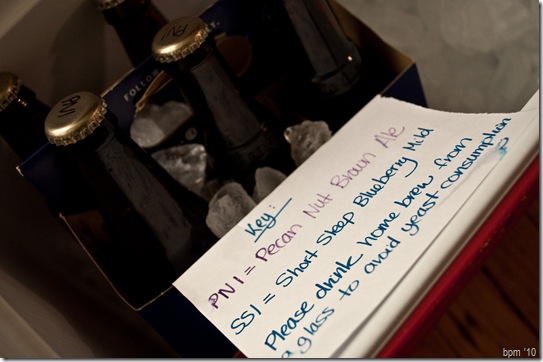 PNI
PNI
FOLLOW
Key:
PNI = Pecan Nut Brown Ale
SSI = Short Sleep Blueberry Mild
Please drink home brew from
a glass to avoid yeast consumption
bpm '10